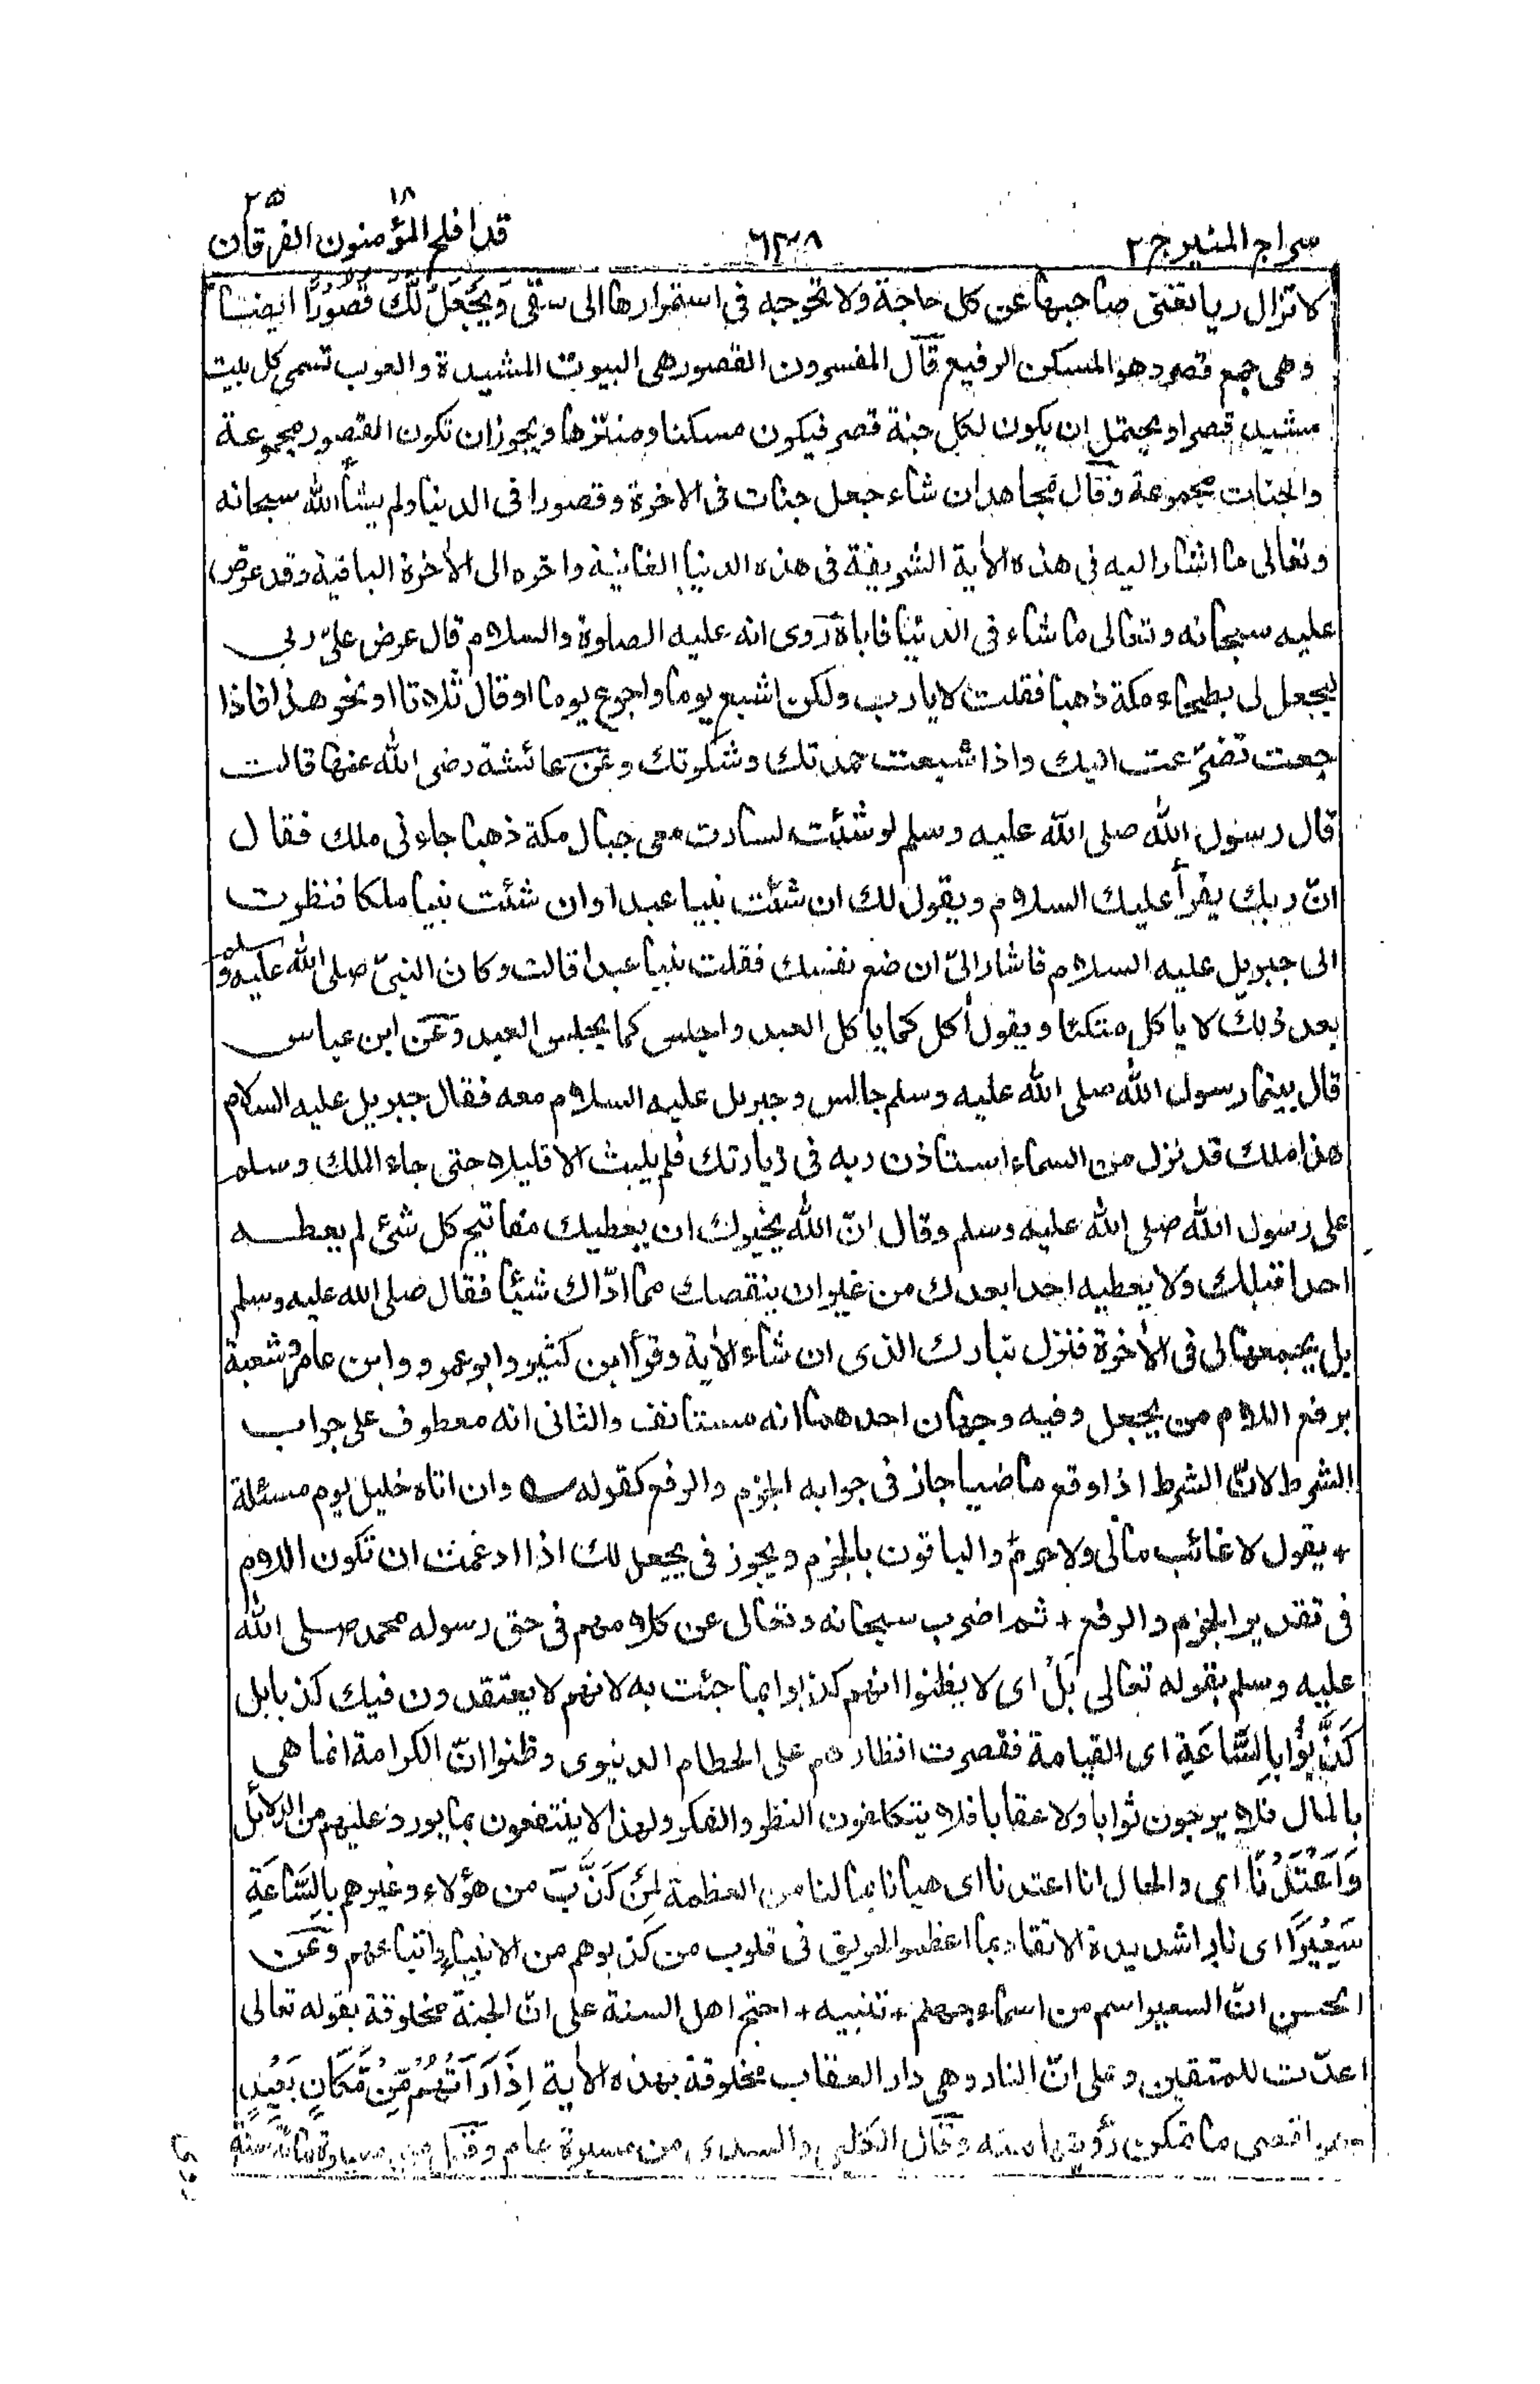 سراج المنير ج ٢
٦٣٨
قد افلح المؤمنون ١٨ الفرقان ٢٥
لا تزال ريا تغنى صاحبها عن كل حاجة ولا تحوجه فى استمرارها الى سقى وَيَجْعَلْ لَّكَ قُصُوْرًا ايضا
وهى جمع قصر وهو المسكن الرفيع قال المفسرون القصور هى البيوت المشيدة والعرب تسمى كل بيت
مشيد قصرا ويحتمل ان يكون لكل جنة قصر فيكون مسكنا ومنتزها ويجوز ان تكون القصور مجموعة
والجنات مجموعة وقال مجاهد ان شاء جعل جنات فى الاخرة وقصورا فى الدنيا ولم يشأ الله سبحانه
وتعالى ما اشار اليه فى هذه الأية الشريفة فى هذه الدنيا الفانية واخره الى الأخرة الباقية وقد عرض
عليه سبحانه وتعالى ما شاء فى الدنيا فاباه روى انه عليه الصلوة والسلام قال عرض علىّ ربى
ليجعل لى بطحاء مكة ذهبا فقلت لا يا رب ولكن اشبع يوما واجوع يوما او قال ثلاثا او نحو هذا فاذا
جعت تضرّعت اليك واذا شبعت حمدتك وشكوتك وعن عائشة رضى الله عنها قالت
قال رسول الله صلى الله عليه وسلم لو شئت لسارت معى جبال مكة ذهبا جاءنى ملك فقال
انّ ربك يقرأ عليك السلام ويقول لك ان شئت نبيا عبدا وان شئت نبيا ملكا فنظرت
الى جبريل عليه السلام فاشار الىّ ان ضع نفسك فقلت نبيا عبدا قالت وكان النبىّ صلى الله عليه وسلم
بعد ذلك لا ياكل متكئا ويقول أكل كما ياكل العبد واجلس كما يجلس العبد وعن ابن عباس
قال بينما رسول الله صلى الله عليه وسلم جالس وجبريل عليه السلام معه فقال جبريل عليه السلام
هذا ملك قد نزل من السماء استاذن ربه فى زيارتك فلم يلبث الا قليلا حتى جاء الملك وسلم
على رسول الله صلى الله عليه وسلم وقال انّ الله يخيرك ان يعطيك مفاتيح كل شئ لم يعطه
احدا قبلك ولا يعطيه احدا بعدك من غير ان ينقصك مما ادّاك شيئا فقال صلى الله عليه وسلم
بل يجمعها لى فى الأخرة فنزل تبارك الذى ان شاء الأية وقرأ ابن كثير وابو عمرو وابن عامر وشعبة
برفع اللام من يجعل وفيه وجهان احدهما انه مستانف والثانى انه معطوف على جواب
الشرط لانّ الشرط اذا وقع ماضيا جاز فى جوابه الجزم والرفع كقوله وان اتاه خليل يوم مسئلة
+ يقول لا غائب مالى ولا حرم والباقون بالجزم ويجوز فى يجعل لك اذا ادغمت ان تكون اللام
فى تقدير الجزم والرفع + ثم اضرب سبحانه وتعالى عن كلامهم فى حق رسوله محمد صلى الله
عليه وسلم بقوله تعالى بَلْ اى لا يظنوا انهم كذبوا بما جئت به لانهم لا يعتقدون فيك كذبا بل
كَذَّبُوْا بِالسَّاعَةِ اى القيامة فقصرت انظارهم على الحطام الدنيوى وظنوا انّ الكرامة انما هى
بالمال فلا يرجون ثوابا ولا عقابا فلا يتكلفون النظر والفكر ولهذا لا ينتفعون بما يورد عليهم من الدلائل
وَاَعْتَدْنَا اى والحال انا اعتدنا اى هيانا بما لنا من العظمة لِمَنْ كَذَّبَ من هؤلاء وغيرهم بِالسَّاعَةِ
سَعِيْرًا اى نارا شديدة الاتقاد بما اعظموا الحريق فى قلوب من كذبوهم من الانبياء واتباعهم وعن
الحسن انّ السعير اسم من اسماء جهنم + تنبيه + احتج اهل السنة على انّ الجنة مخلوقة بقوله تعالى
اعدّت للمتقين وعلى انّ النار وهى دار العقاب مخلوقة بهذه الأية اِذَا رَاَتْهُمْ مِّنْ مَّكَانٍ بَعِيْدٍ
وهو اقصى ما تمكن رؤيتها منه وقال الكلبى والسدى من مسيرة عام وقيل من مسيرة مائة سنة